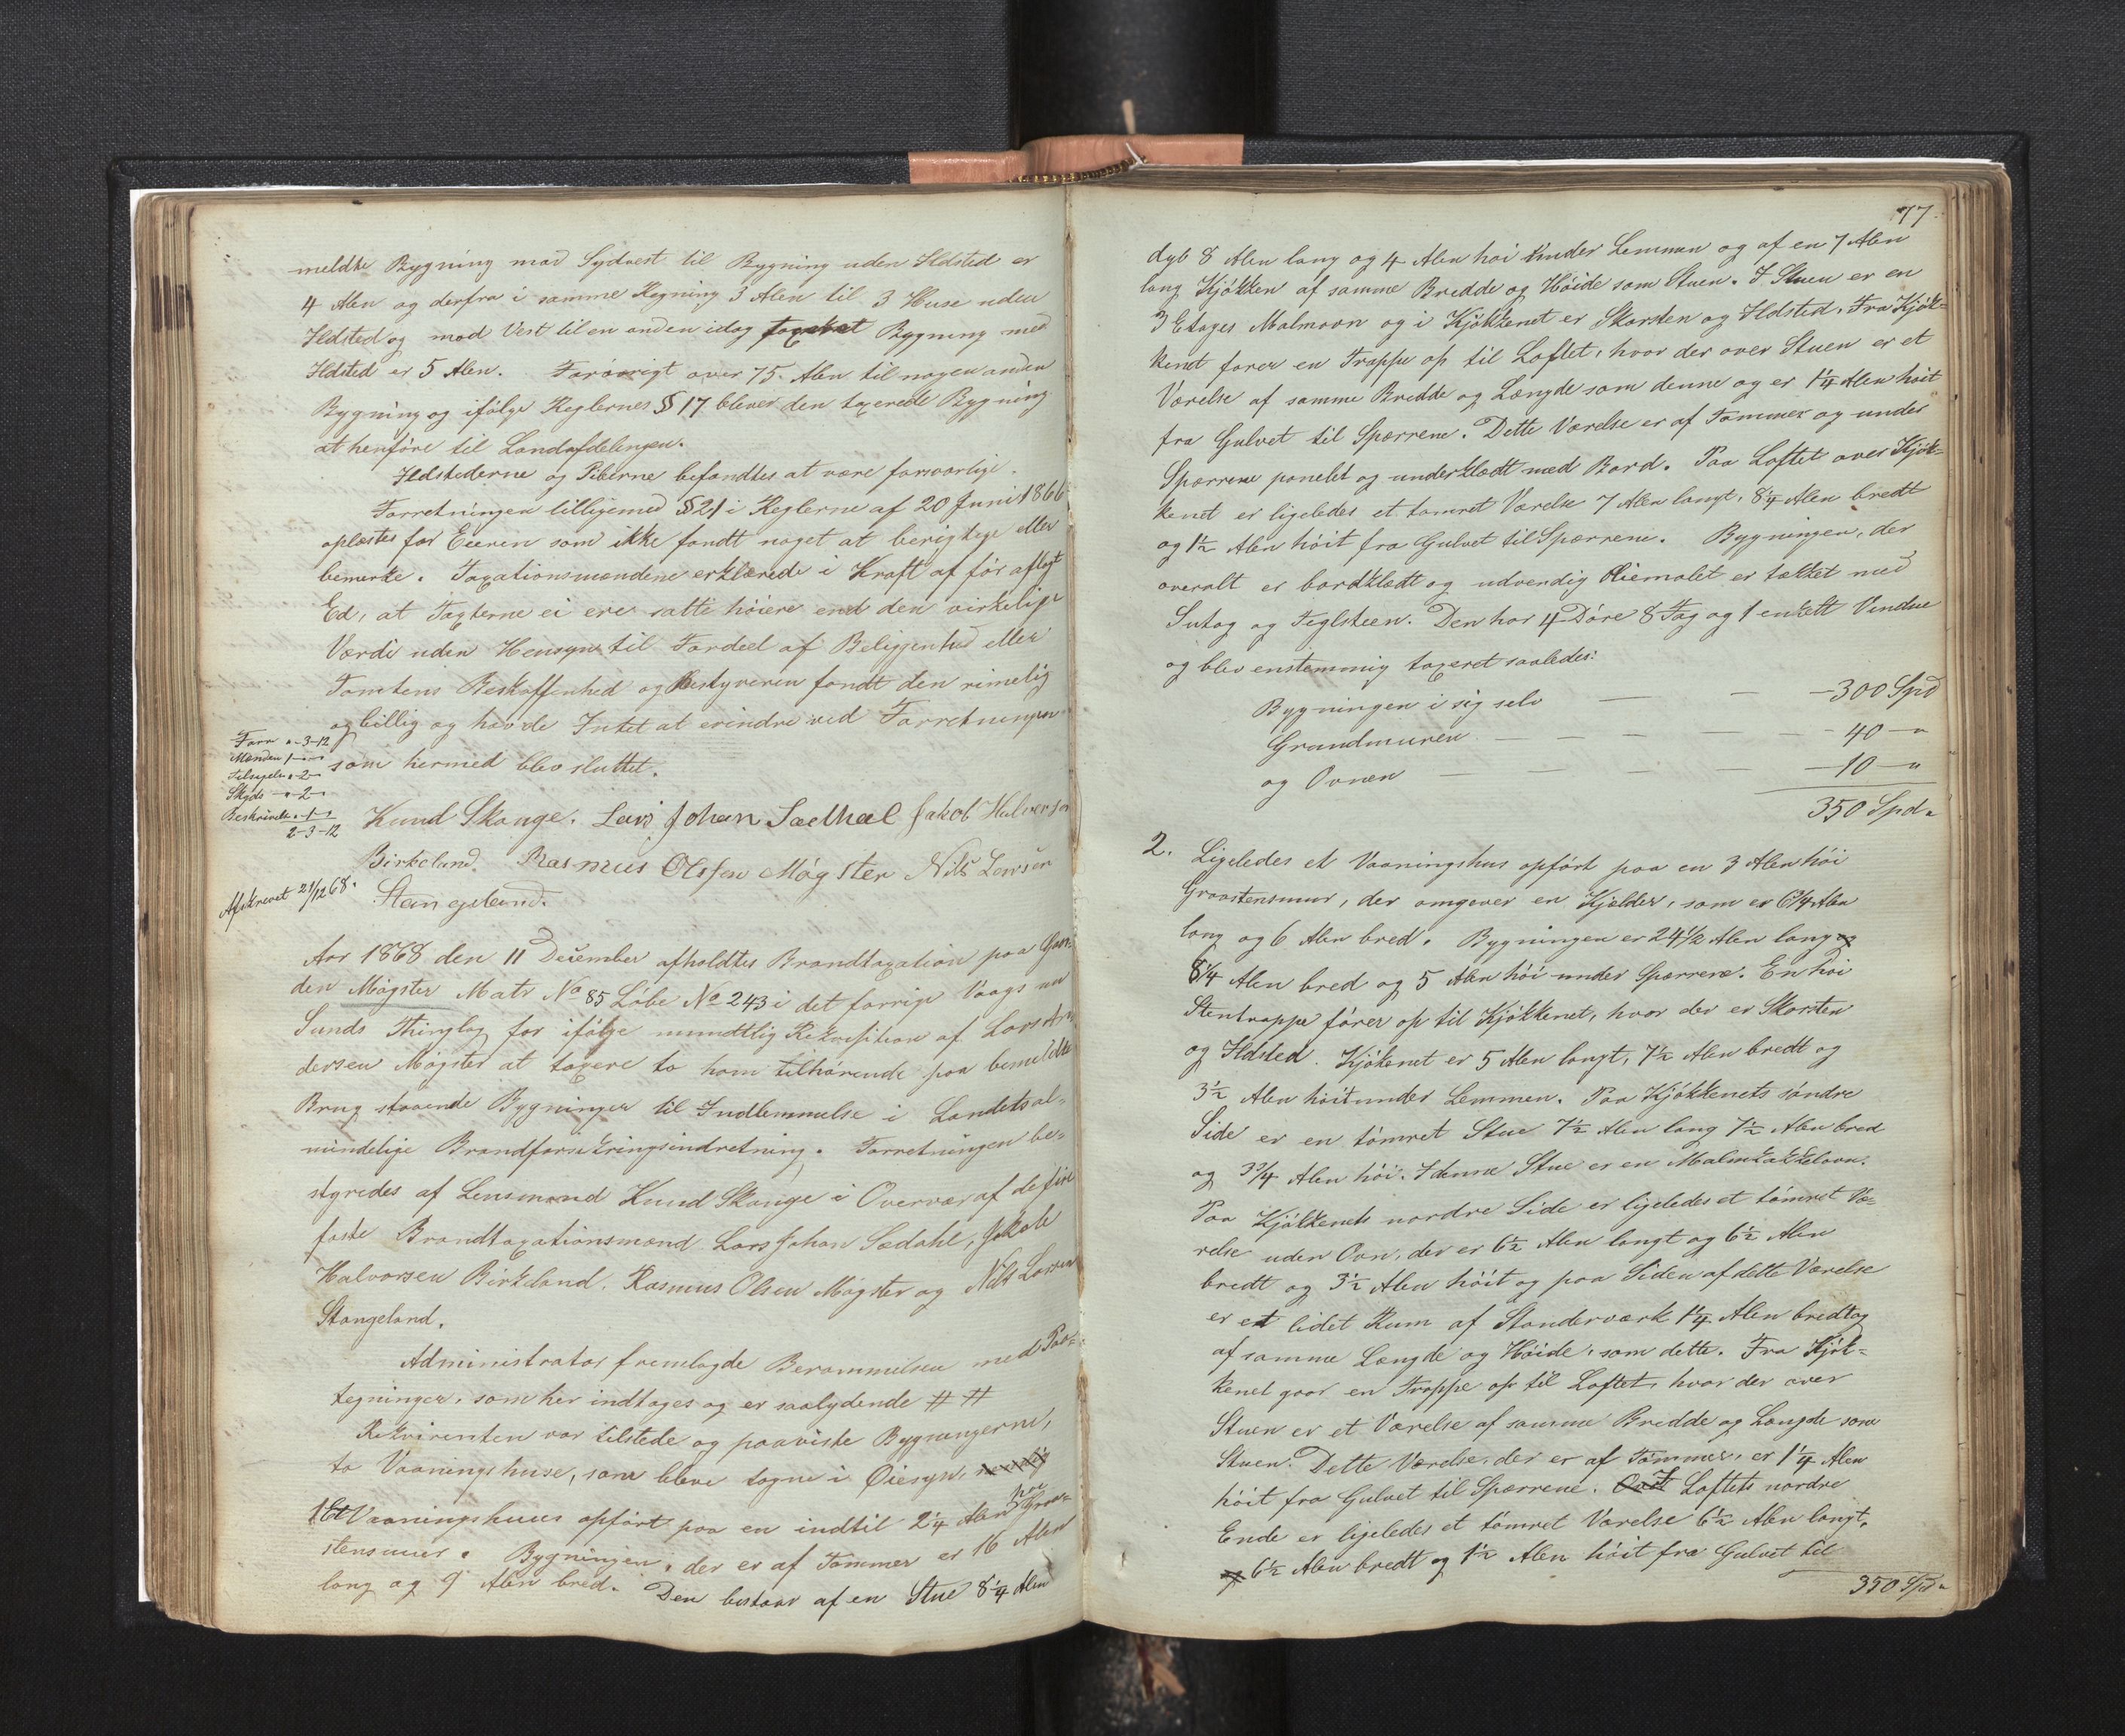 meldte Bygning mod Sydvest til Bygning uden Ildsted er
4 Alen og derfra i samme Regning 3 Alen til 3 Huse uden
Ildsted og mod Vest til en anden idag taxeret Bygning med
Ildsted er 5 Alen. Forövrigt over 75 Alen til nogen anden
Bygning og ifölge Reglernes § 17 bliver den taxerede Bygning
at henföre til Landafdelingen.
Ildstederne og Piberne befandtes at være forsvarlige.
Forretningen tilligemed § 21 i Reglerne af 20 Juni 1866
oplæstes for Eieren som ikke fandt noget at berigtige eller
bemerke. Taxationsmændene erklærede i Kraft af för aflagt
Ed, at Taxterne ei ere satte höiere end den virkelige
Værdi uden Hensyn til Fordeel af Beliggenhed eller
Tomtens Beskaffenhed og Bestyreren fandt den rimelig
og billig og havde Intet at erindre ved Forretningen
som hermed blev sluttet.
Forr " - 3 - 12
Mændene 1 - " - "
Tilsigele " - 2 - "
Skyds - " - 2 - "
Beskrivels " - 1 - "
2 - 3 - 12
Knud Skauge. Lars Johan Sædhal Jakob Halvorsen
Birkeland. Rasmus Olssen Mögster Nils Larsen
Stangeland.
Afskrevet 21/12 68.
Aar 1868 den 11 December afholdtes Brandtaxation paa Gaar-
den Mögster Matr No 85 Löbe No 243 i det forrige Vaags nu
Sunds Thinglag for ifölge mundtlig Rekvisition af Lars An-
dersen Mögster at taxere to ham tilhörende paa bemeldte
Brug staaende Bygninger til Indlemmelse i Landets al-
mindelige Brandforsikringsindretning. Forretningen be-
styredes af Lensmand Knud Skauge i Overvær af de fire
faste Brandtaxationsmænd Lars Johan Sædahl, Jakob
Halvorsen Birkeland, Rasmus Olsen Mögster og Nils Larsen
Stangeland.
Administrator fremlagde Berammelsen med Paa-
tegninger, som her indtages og er saalydende # #
Rekvirenten var tilstede og paaviste Bygningerne,
to Vaaningshuse, som bleve tagne i Öiesyn
1 Et Vaaningshuus opfört paa en indtil 2 1/4 Alen höi Graa-
stensmuur. Bygningen, der er af Tömmer er 16 Alen
lang og 9 Alen bred. Den bestaar af en Stue 8 1/4 Alen
77.
dyb 8 Alen lang og 4 Alen höi under Lemmen og af en 7 Alen
lang Kjökken af samme Bredde og Höide som Stuen. I Stuen er en
3 Etages Malmovn og i Kjökkenet er Skorsten og Ildsted. Fra Kjök-
kenet förer en Trappe op til Loftet, hvor der over Stuen er et
Værelse af samme Bredde og Længde som denne og er 1 1/4 Alen höit
fra Gulvet til Sperrene. Dette Værelse er af Tömmer og under
Sperrene panelet og underklædt med Bord. Paa Loftet over Kjök-
kenet er ligeledes et tömret Værelse 7 Alen langt, 8 1/4 Alen bredt
og 1 1/2 Alen höit fra Gulvet til Spærrene. Bygningen, der
overalt er bordklædt og udvendig Oliemalet er tækket med
Sutag og Teglsteen. Den har 4 Döre 8 Fag og 1 enkelt Vindue
og blev enstemmig taxeret saaledes:
Bygningen i sig selv — — — 300 Spd
Grundmuren — — — — — 40 — "
og Ovnen — — — — — 10 — "
350 Spd.
2. Ligeledes et Vaaningshus opfört paa en 3 Alen höi
Graastensmuur, der omgiver en Kjælder, som er 6 3/4 Alen
lang og 6 Alen bred. Bygningen er 24 1/2 Alen lang og
8 1/4 Alen bred og 5 Alen höi under Sperrene. En höi
Stentrappe förer op til Kjökkenet, hvor der er Skorsten
og Ildsted. Kjökenet er 5 Alen langt, 7 1/2 Alen bredt og
3 1/2 Alen höit under Lemmen. Paa Kjökkenets söndre
Side er en tömret Stue 7 1/2 Alen lang 7 1/2 Alen bred
og 3 3/4 Alen höi. I denne Stue er en Malmkakkelovn.
Paa Kjökkenets nordre Side er ligeledes et tömret Væ-
relse uden Ovn, der er 6 1/2 Alen langt og 6 1/2 Alen
bredt og 3 1/2 Alen höit og paa Siden af dette Værelse
er et lidet Rum af Standerværk 1 1/4 Alen bredt og
af samme Længde og Höide, som dette. Fra Kjök-
kenet gaar en Trappe op til Loftet, hvor der over
Stuen er et Værelse af samme Bredde og Længde som
Stuen. Dette Værelse, der er af Tömmer, er 1 1/4 Alen
höit fra Gulvet til Spærrene. I Loftets nordre
Ende er ligeledes et tömret Værelse 6 1/2 Alen langt,
6 1/2 Alen bredt og 1 1/2 Alen höit fra Gulvet til
350 Spd.